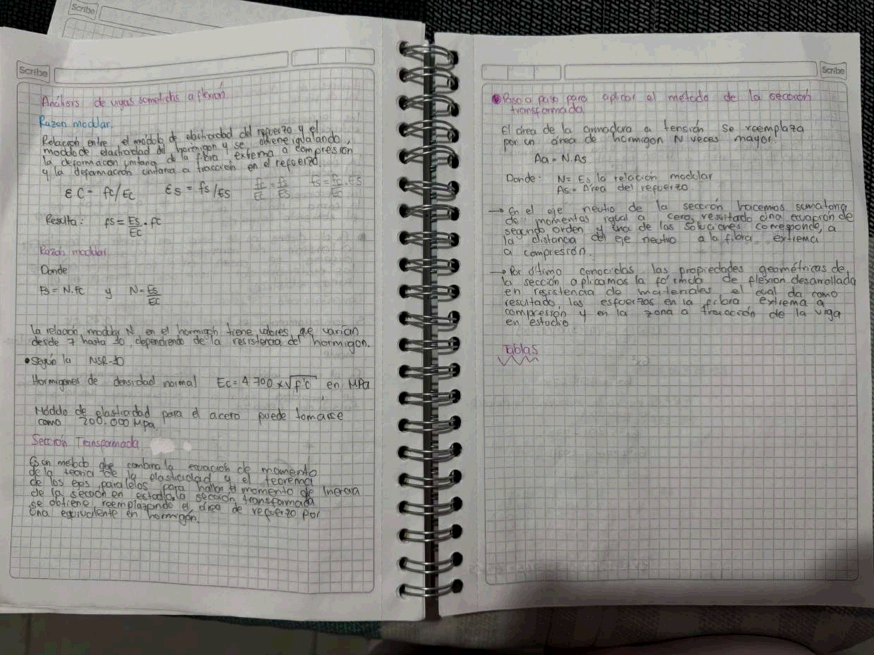 Scribe
Scribe
Análisis de vigas sometidas a flexión
Razon modular.
Relación entre el módulo de elasticidad del refuerzo y el
modulo de elasticidad del hormigon y se obtiene igualando,
la deformacion unitaria de la fibra extema a compresión
y la deformación unitaria a tracción en el refuerzo
εC = fc/Ec εs = fs/Es
Resulta: fs = Es/Ec . fc
modular
Donde
Fs = N.fc y N = Es/Ec
la relación modular N, en el hormigón tiene valores, que varian
desde 7 hasta 10, dependiendo de la resistencia del hormigon.
• Según la NSR-10
Hormigones de densidad normal Ec = 4 700 x √f'c en MPa
Módulo de elasticidad para el acero puede tomarse
como 200.000 MPa
Sección Transformada
Es un metodo que combina la ecuación de momento
de la teoria de la elasticidad y el teorema
de los ejes paralelos para hallar el momento de Inercia
de la sección en estudio, la sección transformada
se obtiene reemplazando el área de refuerzo por
una equivalente en hormigón.
Scribe
• Paso a paso para aplicar el metodo de la sección
transformada
El área de la armadura a tención se reemplaza
por un área de hormigon N veces mayor:
Aa = N.As
Donde: N = Es la relación modular
As = Área del refuerzo
→ En el eje neutro de la sección hacemos sumatoria
de momentos igual a cero, resultado una ecuación de
segundo orden y una de las soluciones corresponde, a
la distancia del eje neutro a la fibra extrema
a compresión.
→ Por último conocidas las propiedades geométricas de
la sección aplicamos la fórmula de flexión desarrollada
en resistencia de materiales el cual da como
resultado, los esfuerzos en la fibra extrema a
compresión y en la zona a tracción de la viga
en estudio
Tablas